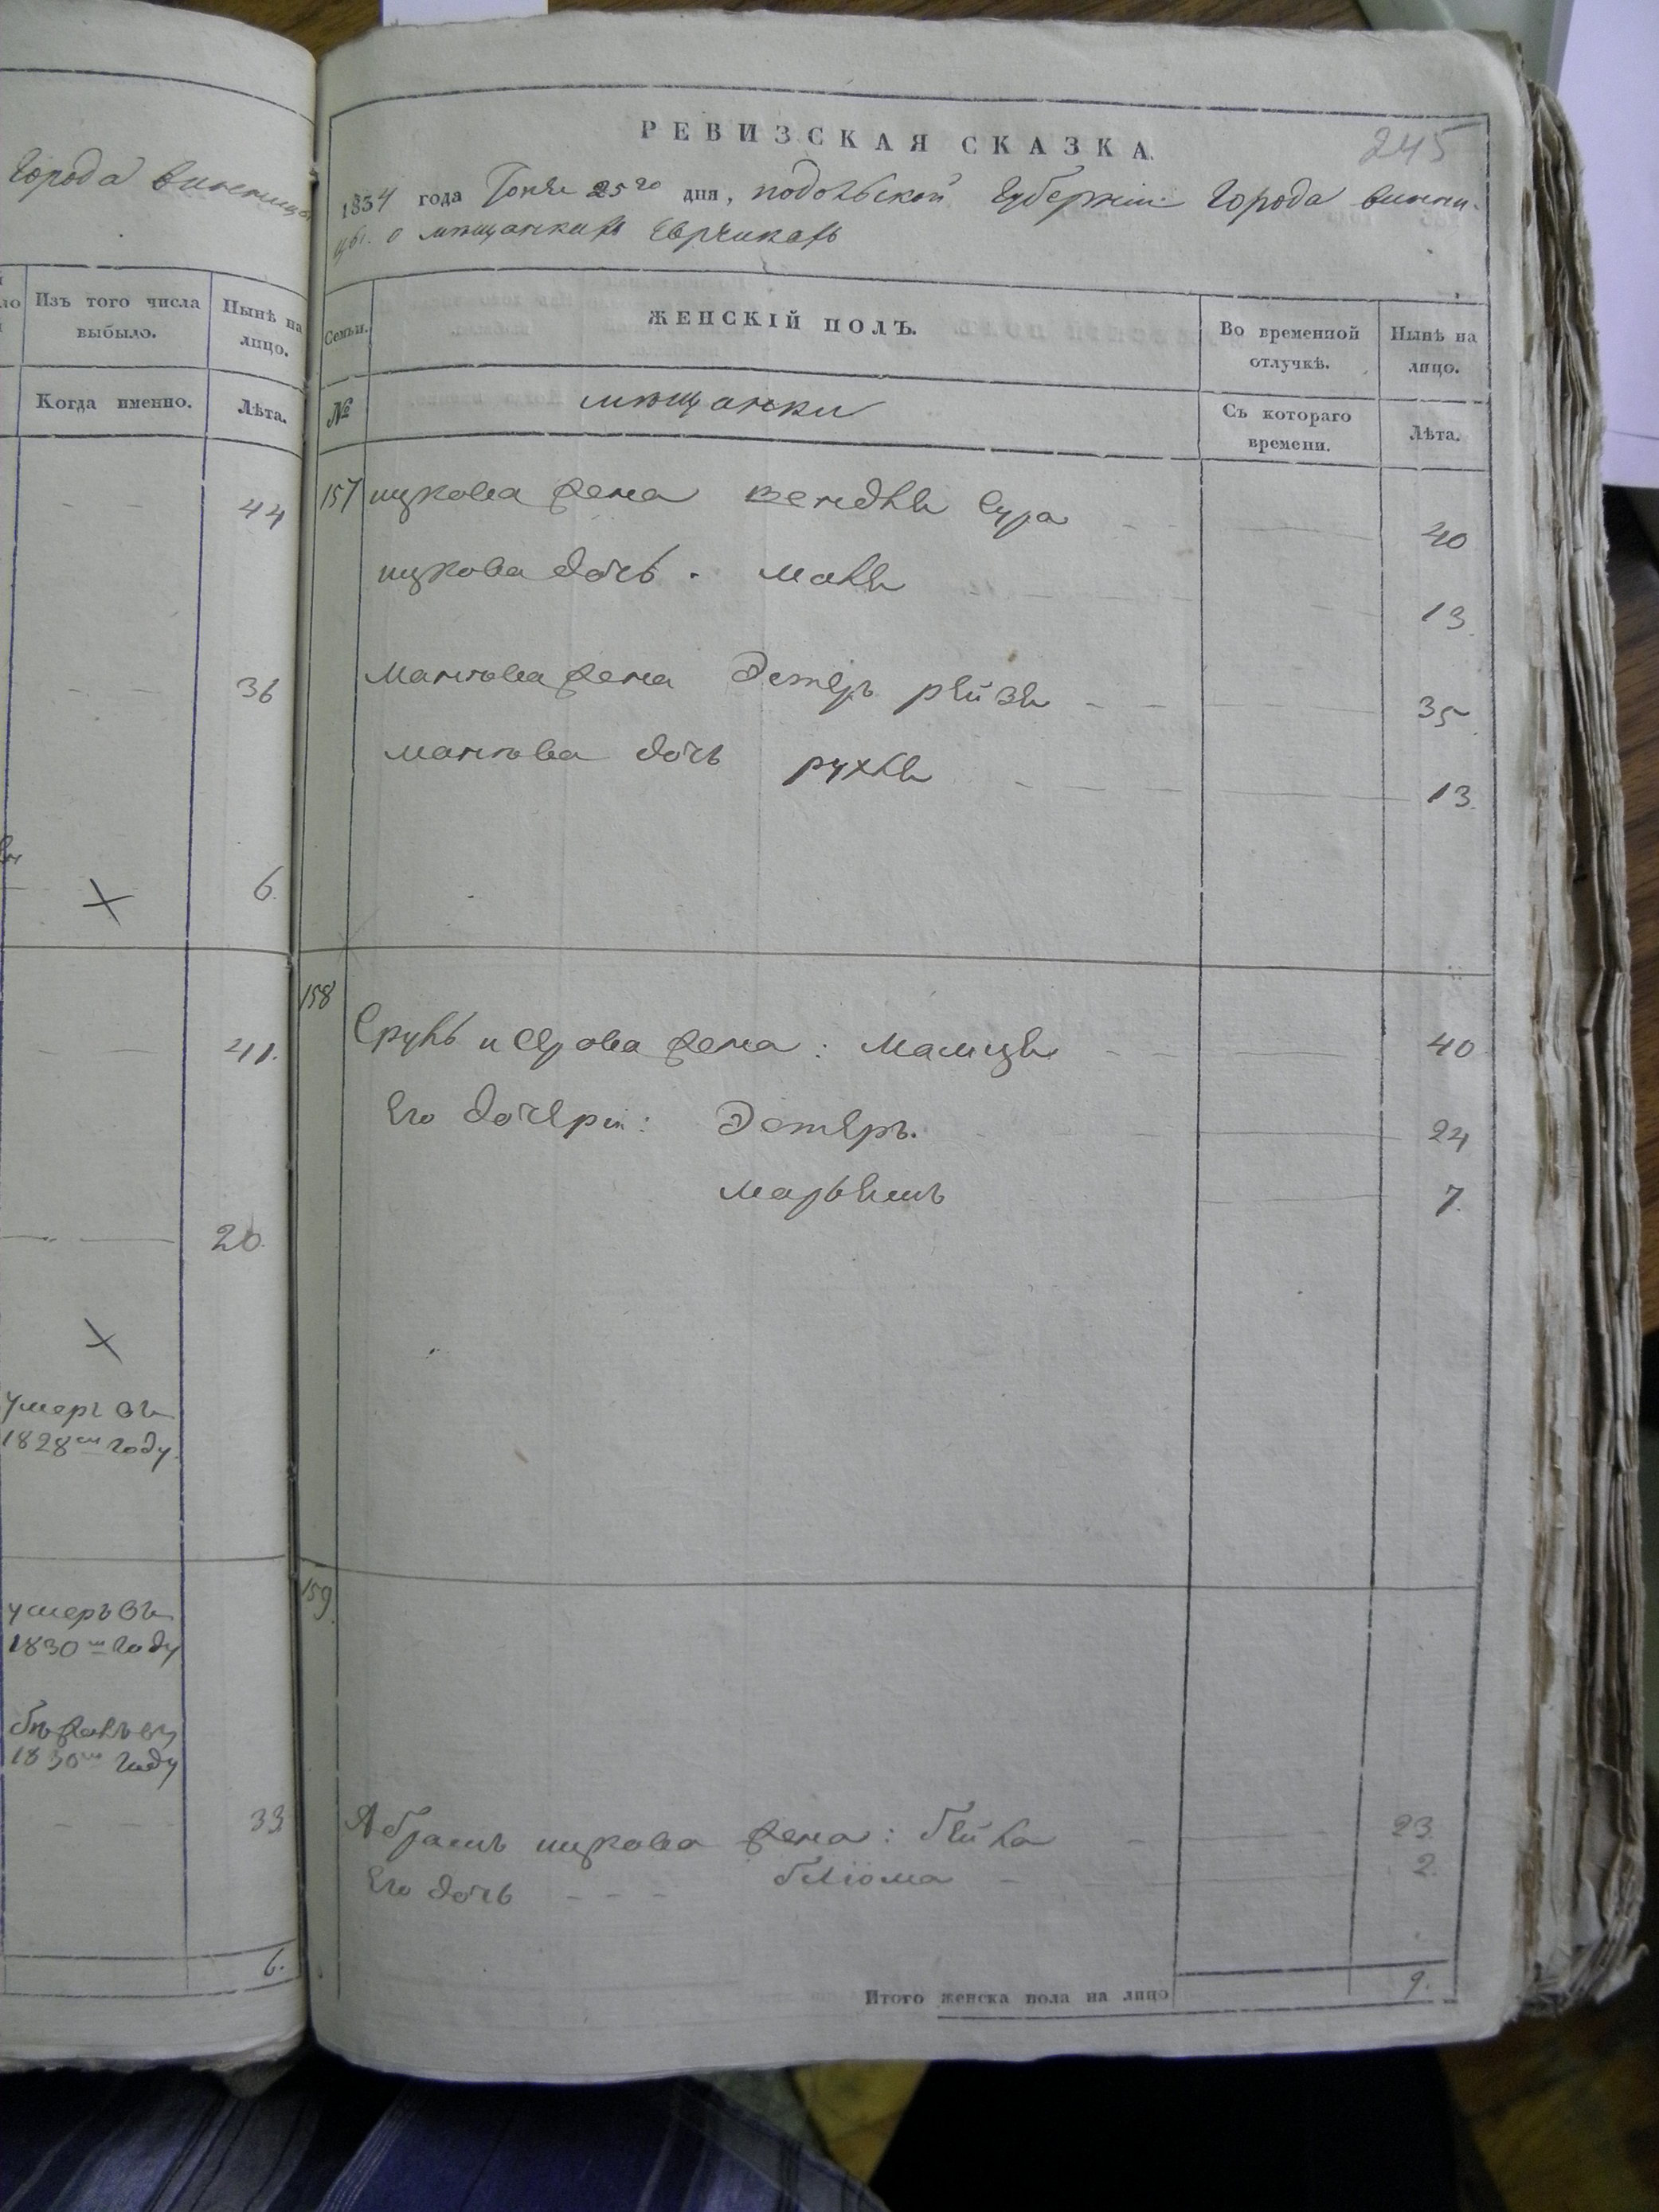 Города Винницы
Изъ того числа выбыло.
Нынѣ на лицо.
Когда именно.
Лѣта.
44
36
6.
41.
20.
умеръ въ
1828 м году
умеръ въ
1830 м году
1830 м году
33
6.
245
РЕВИЗСКАЯ СКАЗКА.
1834 года Іюня 25 го дня, Подольской Губерніи Города Винни-
цы. о мѣщанкахъ Евреикахъ
Семьи.
ЖЕНСКІЙ ПОЛЪ.
Во временной отлучкѣ.
Нынѣ на лицо.
№
мѣщанки
Съ котораго времени.
Лѣта.
157 ицкова жена Сура 40
ицкова дочь. Маля 13.
жена Эстеръ Рейзя 35
дочь Рухля 13.
158
Сруль жена: Мамця 40
Его дочери: Эстеръ. 24
Марьямъ 7.
159
Абрамъ ицкова жена: Бейла 23.
Его дочь Блюма 2.
Итого женска пола на лицо 9.